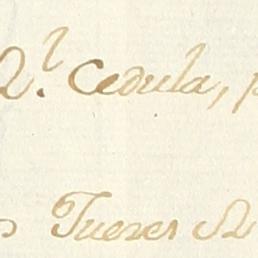 R.l Cedula, p
Juezes R